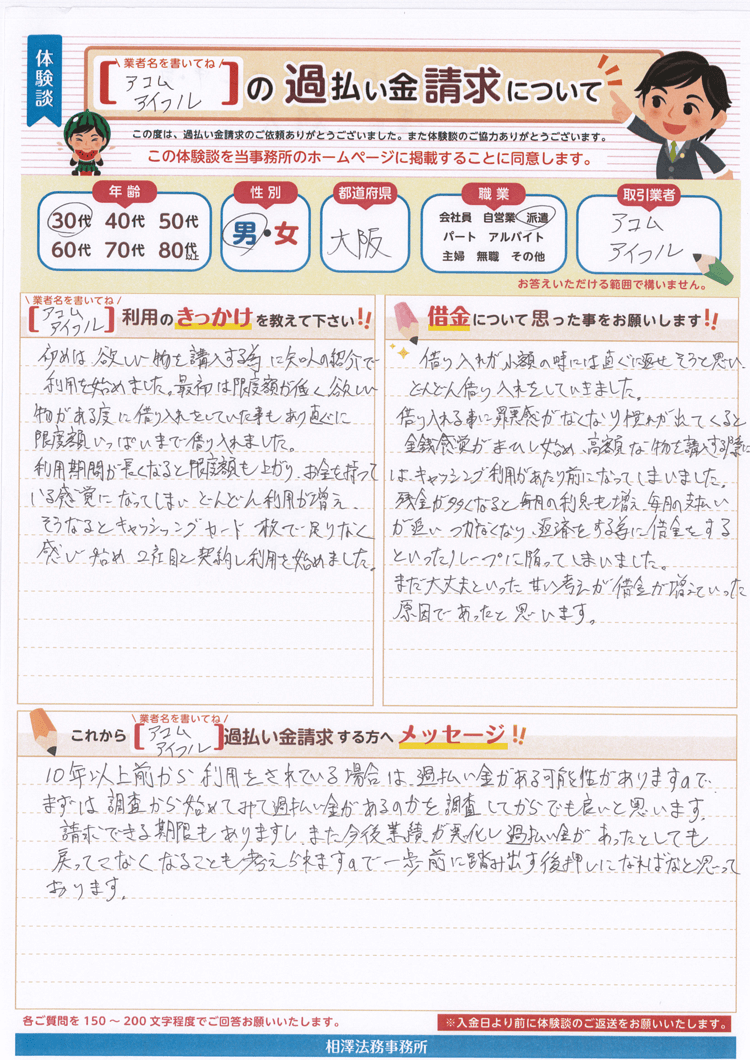 体験談
業者名を書いてね
アコム
アイフル
の 過払い金請求について
この度は、過払い金請求のご依頼ありがとうございました。また体験談のご協力ありがとうございます。
この体験談を当事務所のホームページに掲載することに同意します。
年齢
30代 40代 50代
60代 70代 80代以上
性別
男・女
都道府県
大阪
職業
会社員 自営業 派遣
パート アルバイト
主婦 無職 その他
取引業者
アコム
アイフル
お答えいただける範囲で構いません。
業者名を書いてね
アコム
アイフル
利用のきっかけを教えて下さい!!
初めは欲しい物を講入する為に知人の紹介で
利用を始めました。最初は限度額が低く欲しい
物がある度に借り入れをしていた事もあり直ぐに
限度額いっぱいまで借り入れました。
利用期間が長くなると限度額も上がり、お金を持って
いる感覚になってしまいどんどん利用が増え、
そうなるとキャッシングカード一枚で足りなく
感じ始め 2社目と契約し利用を始めました。
借金について思った事をお願いします!!
借り入れが小額の時には直ぐに返せそうと思い
どんどん借り入れをしていきました。
借り入れる事に罪実感がなくなり慣れが出てくると
金銭感覚がまひし始め、高額な物を講入する際に
は、キャッシング利用があたり前になってしまいました。
残金が多くなると毎月の利息も増え、毎月の支払い
が追いつかなくなり、返済をする為に借金をする
といったループに陥ってしまいました。
まだ大丈夫といった甘い考えが借金が増えていった
原因であったと思います。
これから
業者名を書いてね
アコム
アイフル
過払い金請求する方へメッセージ!!
10年以上前から利用をされている場合は、過払い金がある可能性がありますので、
まずは調査から始めてみて過払い金があるのかを調査してからでも良いと思います。
請求できる期限もありますし、また今後業績が悪化し過払い金があったとしても
戻ってこなくなることも考えられますので一歩前に踏み出す後押しになればなと思って
おります。
各ご質問を150～200文字程度でご回答お願いいたします。
※入金日より前に体験談のご返送をお願いいたします。
相澤法務事務所